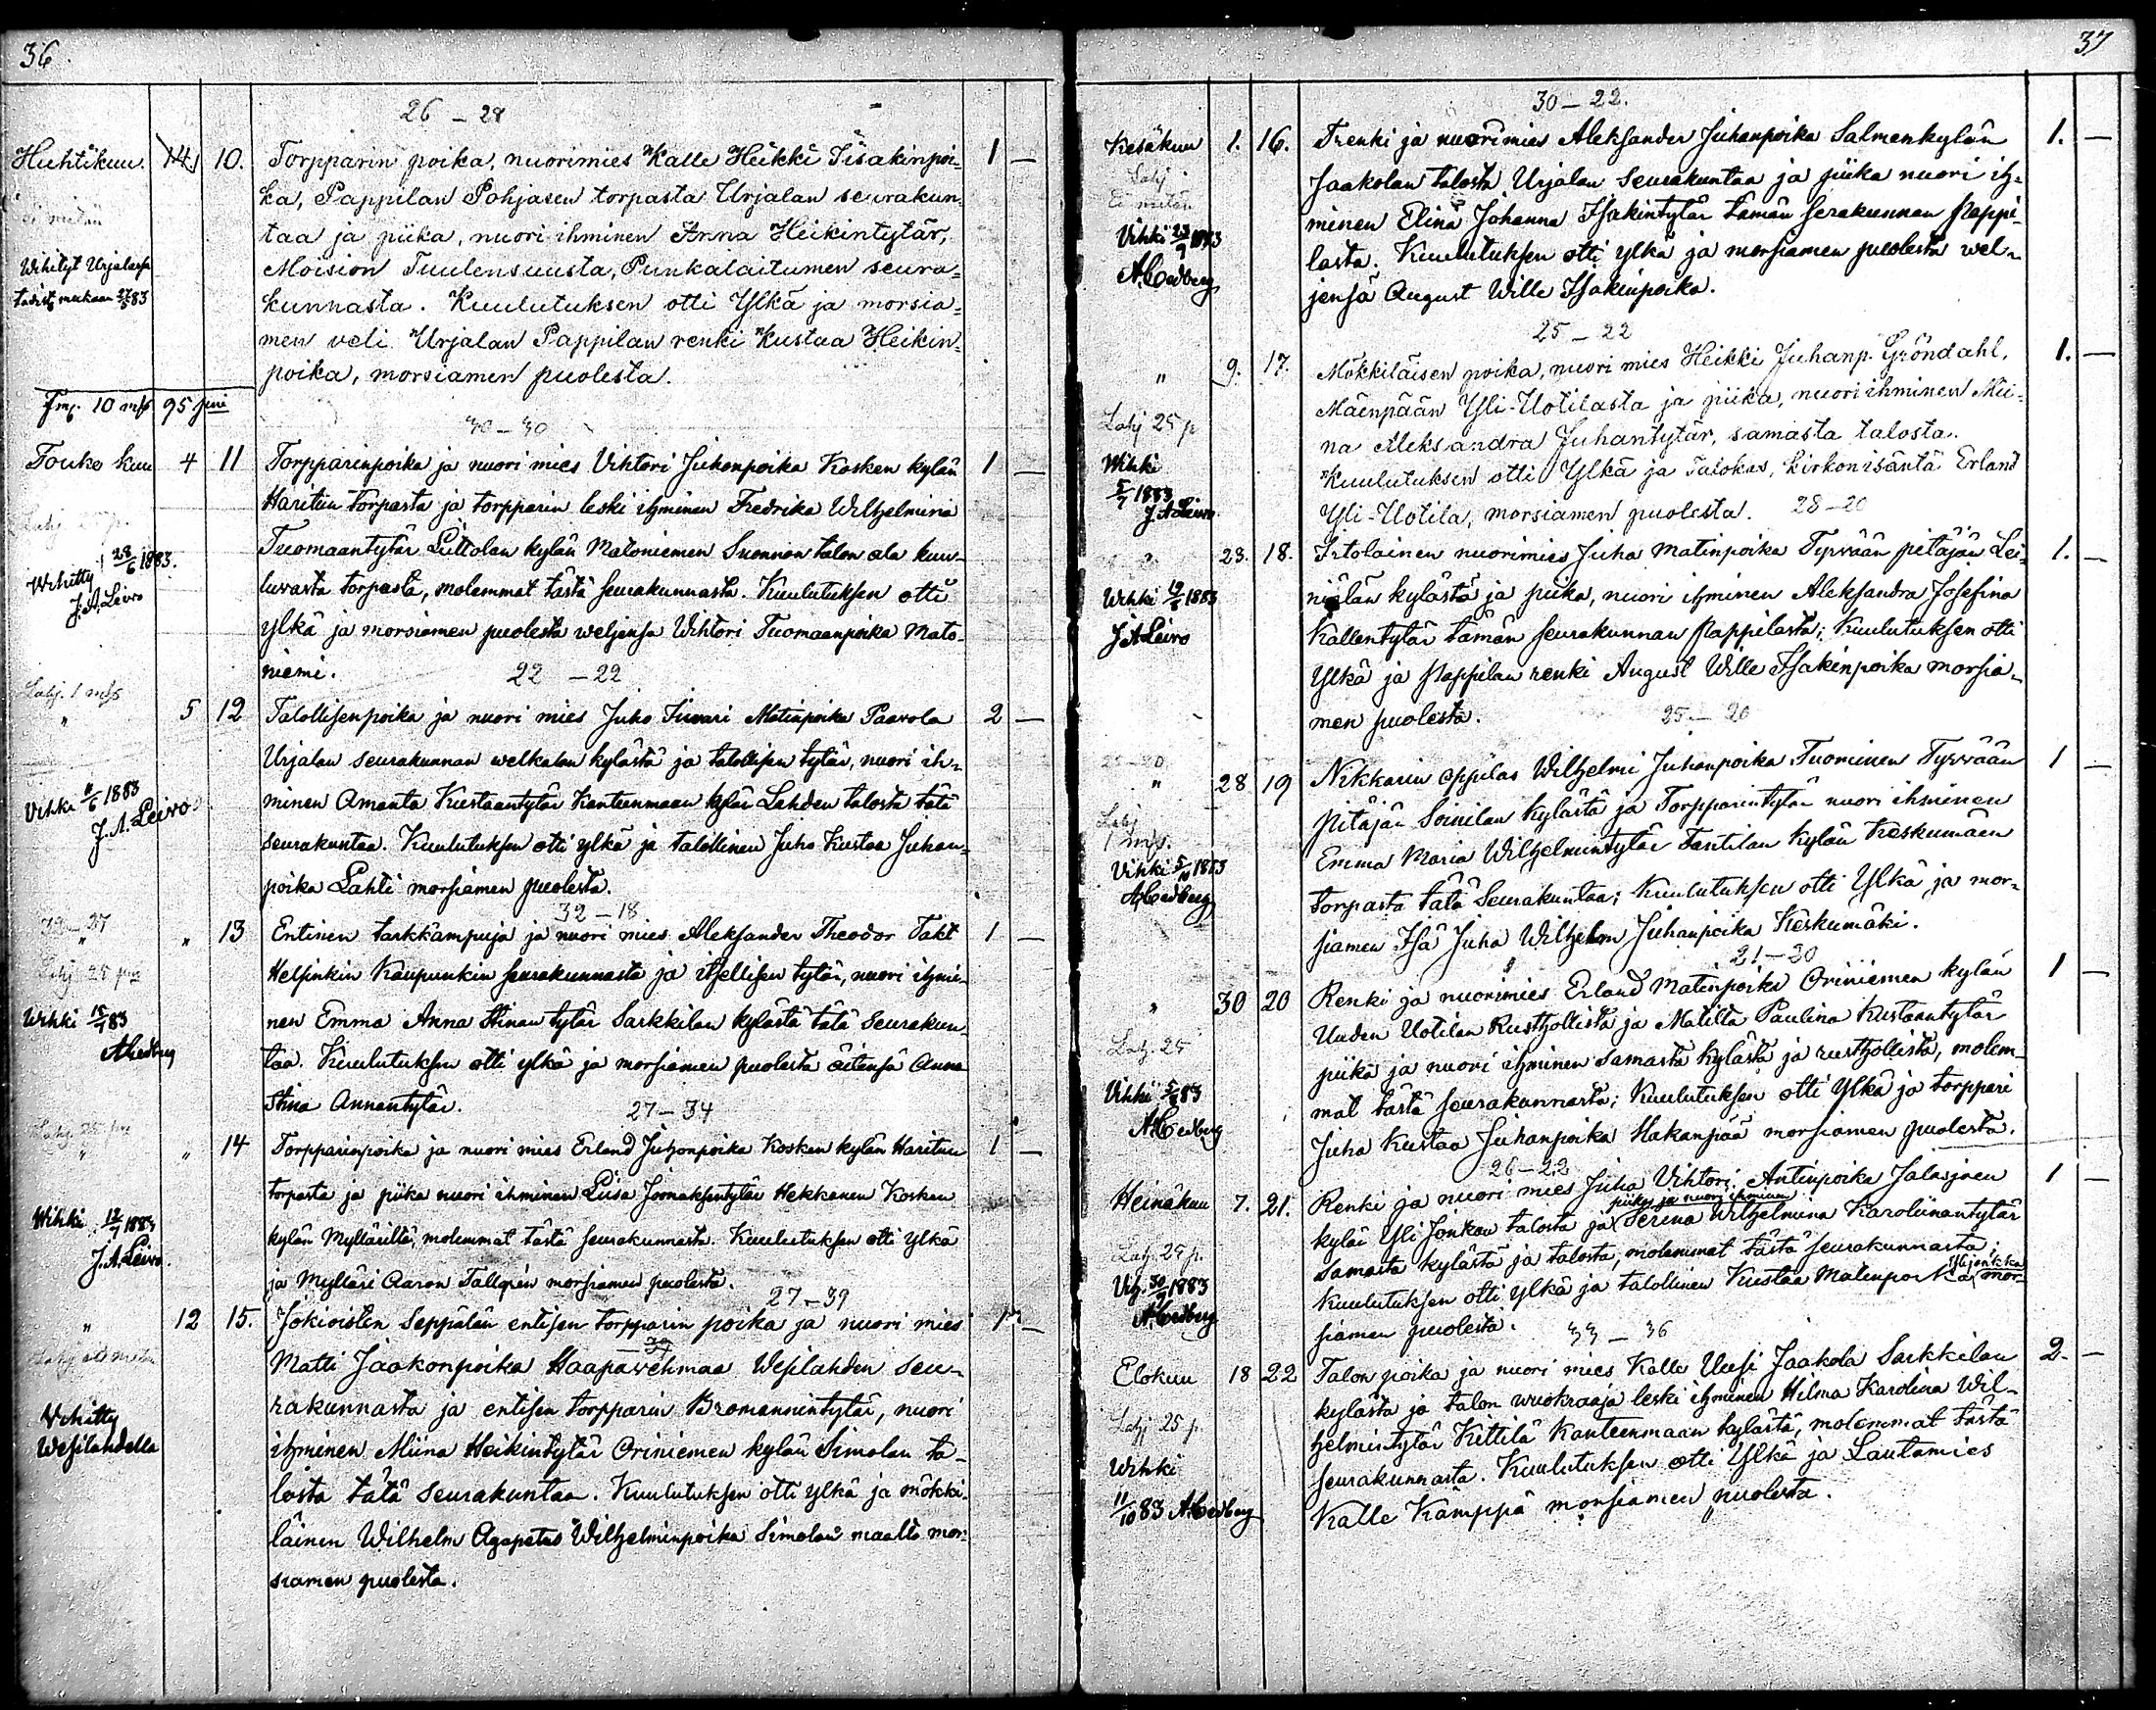 36
26 – 28
Huhtikuu. 14. 10. Torpparin poika, nuorimies Kalle Heikki Iisakinpoi- 1 —
ka, Pappilan Pohjasen torpasta Urjalan seurakun-
taa ja piika, nuori ihminen Anna Heikintytär,
Wihityt Urjalassa
Moision Tuulensuusta, Punkalaitumen seura-
todist. mukaan 83
kunnasta. Kuulutuksen otti Ylkä ja morsia-
men veli Urjalan Pappilan renki Kustaa Heikin-
poika, morsiamen puolesta.
10 mk 95 pni
30 – 30
Touko kuu 4 11 Torpparinpoika ja nuori mies Vihtori Juhonpoika Kosken kylän 1 —
Haritun torpasta ja torpparin leski ihminen Fredrika Wilhelmina
Tuomaantytär Liittolan kylän Matoniemen Suonnon talon ala kuu-
Wihitty 28/6 1883.
J. A. Leivo
luvasta torpasta, molemmat tästä seurakunnasta. Kuulutuksen otti
ylkä ja morsiamen puolesta weljensä Wihtori Tuomaanpoika Mato-
niemi.
22 – 22
Lahj. 1 mk
" 5 12 Talollisenpoika ja nuori mies Juho Iivari Matinpoika Paavola 2 —
Urjalan seurakunnan welkalan kylästä ja talollisen tytär, nuori ih-
minen Amanta Kustaantytär Kanteenmaan kylän Lahden talosta tätä
Vihki 1883
J. A. Leivo
seurakuntaa. Kuulutuksen otti ylkä ja talollinen Juho Kustaa Juhan-
poika Lahti morsiamen puolesta.
32 – 18
" " 13 Entinen tarkkampuja ja nuori mies Aleksander Theodor Takt 1 —
Lahj 25 pni
Helsinkin Kaupunkin seurakunnasta ja itsellisen tytär, nuori ihmi-
Wihki 83
nen Emma Anna Stinan tytär Sarkkilan kylästä tätä seurakun-
taa. Kuulutuksen otti ylkä ja morsiamen puolesta äitensä Anna
Stina Annantytär.
27 – 34
" " 14 Torpparinpoika ja nuori mies Erland Juhonpoika Kosken kylän Haritun 1 —
torpasta ja piika nuori ihminen Liisa Joonaksentytär Hekkanen Kosken
Wihki 1883
J. A. Leivo.
kylän Mylläriltä, molemmat tästä seurakunnasta. Kuulutuksen otti ylkä
ja Mylläri Aaron Tallqren morsiamen puolesta.
27 – 39
" 12 15. Jokioisten Seppälän entisen torpparin poika ja nuori mies 1 —
39
Matti Jaakonpoika Haapawehmaa Wesilahden seu-
rakunnasta ja entisen torpparin Bromannintytär, nuori
Wihitty
Wesilahdella
ihminen Miina Heikintytär Oriniemen kylän Simolan ta-
losta tätä seurakuntaa. Kuulutuksen otti ylkä ja mökki-
läinen Wilhelm Agapetus Wilhelminpoika Simolan maalta mor-
siamen puolesta.
37
30 – 22.
Kesäkuu 1. 16. Trenki ja nuorimies Aleksander Juhanpoika Salmenkylän 1. —
Jaakolan talosta Urjalan seurakuntaa ja piika nuori ih-
minen Elina Johanna Isakintytär tämän serakunnan Pappi-
Vihki 1883
A. Cedberg
lasta. Kuulutuksen otti ylkä ja morsiamen puolesta wel-
jensä August Wille Isakinpoika.
25 – 22
" 9. 17. Mökkiläisen poika, nuori mies Heikki Juhanp. Gröndahl, 1. —
Mäenpään Yli-Uotilasta ja piika, nuori ihminen Mii-
Lahj 25 p
na Aleksandra Juhantytär, samasta talosta.
Wihki
Kuulutuksen otti Ylkä ja Talokas, Kirkon isäntä Erland
5/7 1883
J. A. Leivo.
Yli-Uotila, morsiamen puolesta. 28–20
23. 18. Irtolainen nuorimies Juha Matinpoika Tyrvään pitäjän Lei- 1. —
Wihki 1883
niälän kylästä ja piika, nuori ihminen Aleksandra Josefina
J A Leivo
Kallentytär tämän seurakunnan Pappilasta; Kuulutuksen otti
Ylkä ja Pappilan renki August Wille Isakinpoika morsia-
men puolesta.
25 – 20
" 28 19 Nikkarin oppilas Wilhelmi Juhanpoika Tuominen Tyrvään 1 —
Pitäjän Soinilan kylästä ja Torpparintytär nuori ihminen
Lahj
1 mk.
Emma Maria Wilhelmintytär Tantilan kylän Keskumäen
Vihki 1883
A. Cedberg
torpasta tätä Seurakuntaa; Kuulutuksen otti Ylkä ja mor-
siamen Isä Juha Wilhelm Juhanpoika Keskumäki.
21–20
" 30 20 Renki ja nuorimies Erland Matinpoika Oriniemen kylän 1 —
Uuden Uotilan Rusthollista ja Matilta Paulina Kustaantytär
Lahj. 25
piika ja nuori ihminen samasta kylästä ja rusthollista, molem-
Vihki 83
A. Cedberg
mat tästä seurakunnasta; Kuulutuksen otti Ylkä ja torppari
Juha Kustaa Juhanpoika Hakanpää morsiamen puolesta.
26–22
Heinäkuu 7. 21. Renki ja nuori mies Juha Vihtori Antinpoika Jalasjoen 1 —
piika ja nuori ihminen
kylän Yli Jonkan talosta ja Serena Wilhelmina Karoliinantytär
Lahj. 25 p.
samasta kylästä ja talosta, molemmat tästä seurakunnasta;
Ylijonkka
Vih. 1883
A. Cedberg
Kuulutuksen otti ylkä ja talollinen Kustaa Matinpoika mor-
siamen puolesta.
33 – 36
Elokuu 18 22 Talon poika ja nuori mies Kalle Uusi Jaakola Sarkkilan 2. —
kylästä ja talon wuokraaja leski ihminen Hilma Karolina Wil-
Lahj 25 p.
helmintytär Kittilä Kanteenmaan kylästä, molemmat tästä
Wihki
seurakunnasta. Kuulutuksen otti Ylkä ja Lautamies
11/10 83 A. Cedberg
Kalle Kämppä morsiamen puolesta.